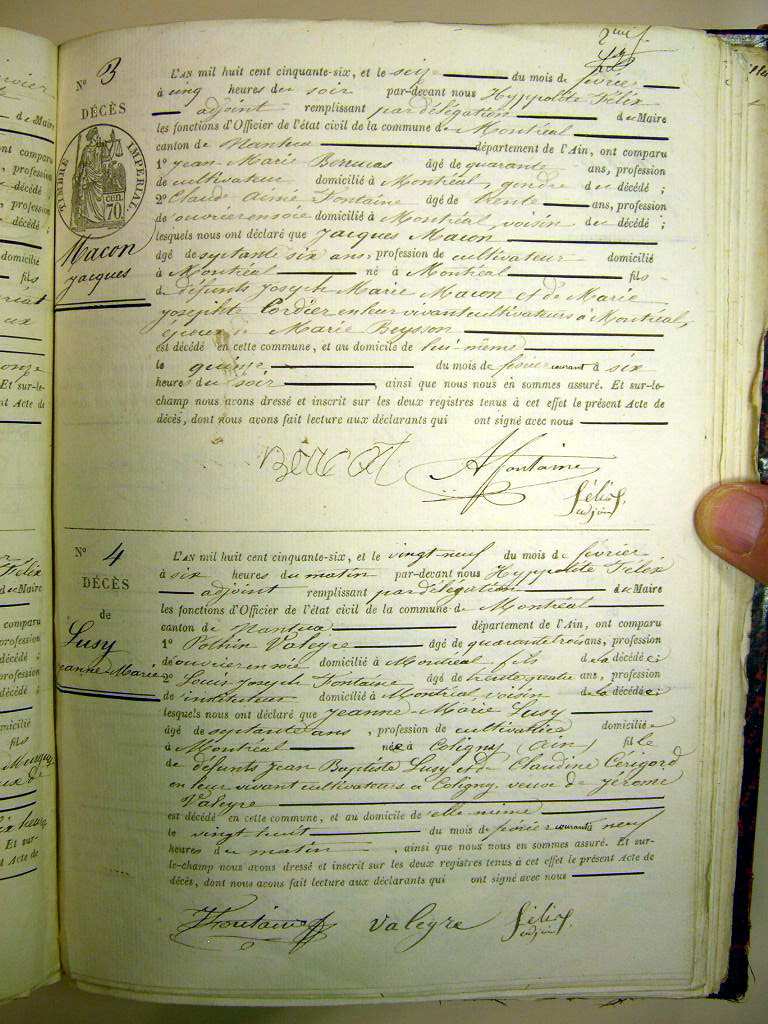 N° 3
DÉCÈS
TIMBRE IMPÉRIAL.
70 CEN.
Macon
Jacques
L'AN mil huit cent cinquante-six, et le seize du mois de février
à cinq heures du soir par-devant nous Hyppolite Félix
adjoint remplissant par délégation du Maire
les fonctions d'Officier de l'état civil de la commune de Montréal
canton de Nantua département de l'Ain, ont comparu
1° Jean Marie agé de quarante ans, profession
de cultivateur domicilié à Montréal, gendre du décédé ;
2° Claude Aimé Fontaine agé de trente ans, profession
de ouvrier en soie domicilié à Montréal, voisin du décédé ;
lesquels nous ont déclaré que Jacques Macon
âgé de septante six ans, profession de cultivateur domicilié
à Montréal né à Montréal fils
de défunts Joseph Marie Macon et de Marie
Josephte Cordier en leur vivant cultivateurs à Montréal,
époux de Marie Beysson
est décédé en cette commune, et au domicile de lui-même
le quinze du mois de février courant à six
heures du soir, ainsi que nous nous en sommes assuré. Et sur-le-
champ nous avons dressé et inscrit sur les deux registres tenus à cet effet le présent Acte de
décès, dont nous avons fait lecture aux déclarants qui ont signé avec nous
A Fontaine
Félix
adjoint
N° 4
DÉCÈS
de
Lusy
Jeanne-Marie
L'AN mil huit cent cinquante-six, et le vingt-neuf du mois de février
à six heures du matin par-devant nous Hyppolite Félix
adjoint remplissant par délégation du Maire
les fonctions d'Officier de l'état civil de la commune de Montréal
canton de Nantua département de l'Ain, ont comparu
1° Pothin Valeyre agé de quarante trois ans, profession
de ouvrier en soie domicilié à Montréal fils de la décédée ;
2° Louis Joseph Fontaine agé de trente quatre ans, profession
de instituteur domicilié à Montréal voisin de la décédée ;
lesquels nous ont déclaré que Jeanne Marie Lusy
âgé de septante ans, profession de cultivatrice domiciliée
à Montréal née à Coligny (Ain) fille
de défunts Jean Baptiste Lusy et de Claudine Cérigord
en leur vivant cultivateurs à Coligny, veuve de Jérome
Valeyre
est décédé en cette commune, et au domicile de elle-même
le vingt huit du mois de février courant à neuf
heures du matin, ainsi que nous nous en sommes assuré. Et sur-
le-champ nous avons dressé et inscrit sur les deux registres tenus à cet effet le présent Acte de
décès, dont nous avons fait lecture aux déclarants qui ont signé avec nous
Fontaine Valeyre Félix
adjoint